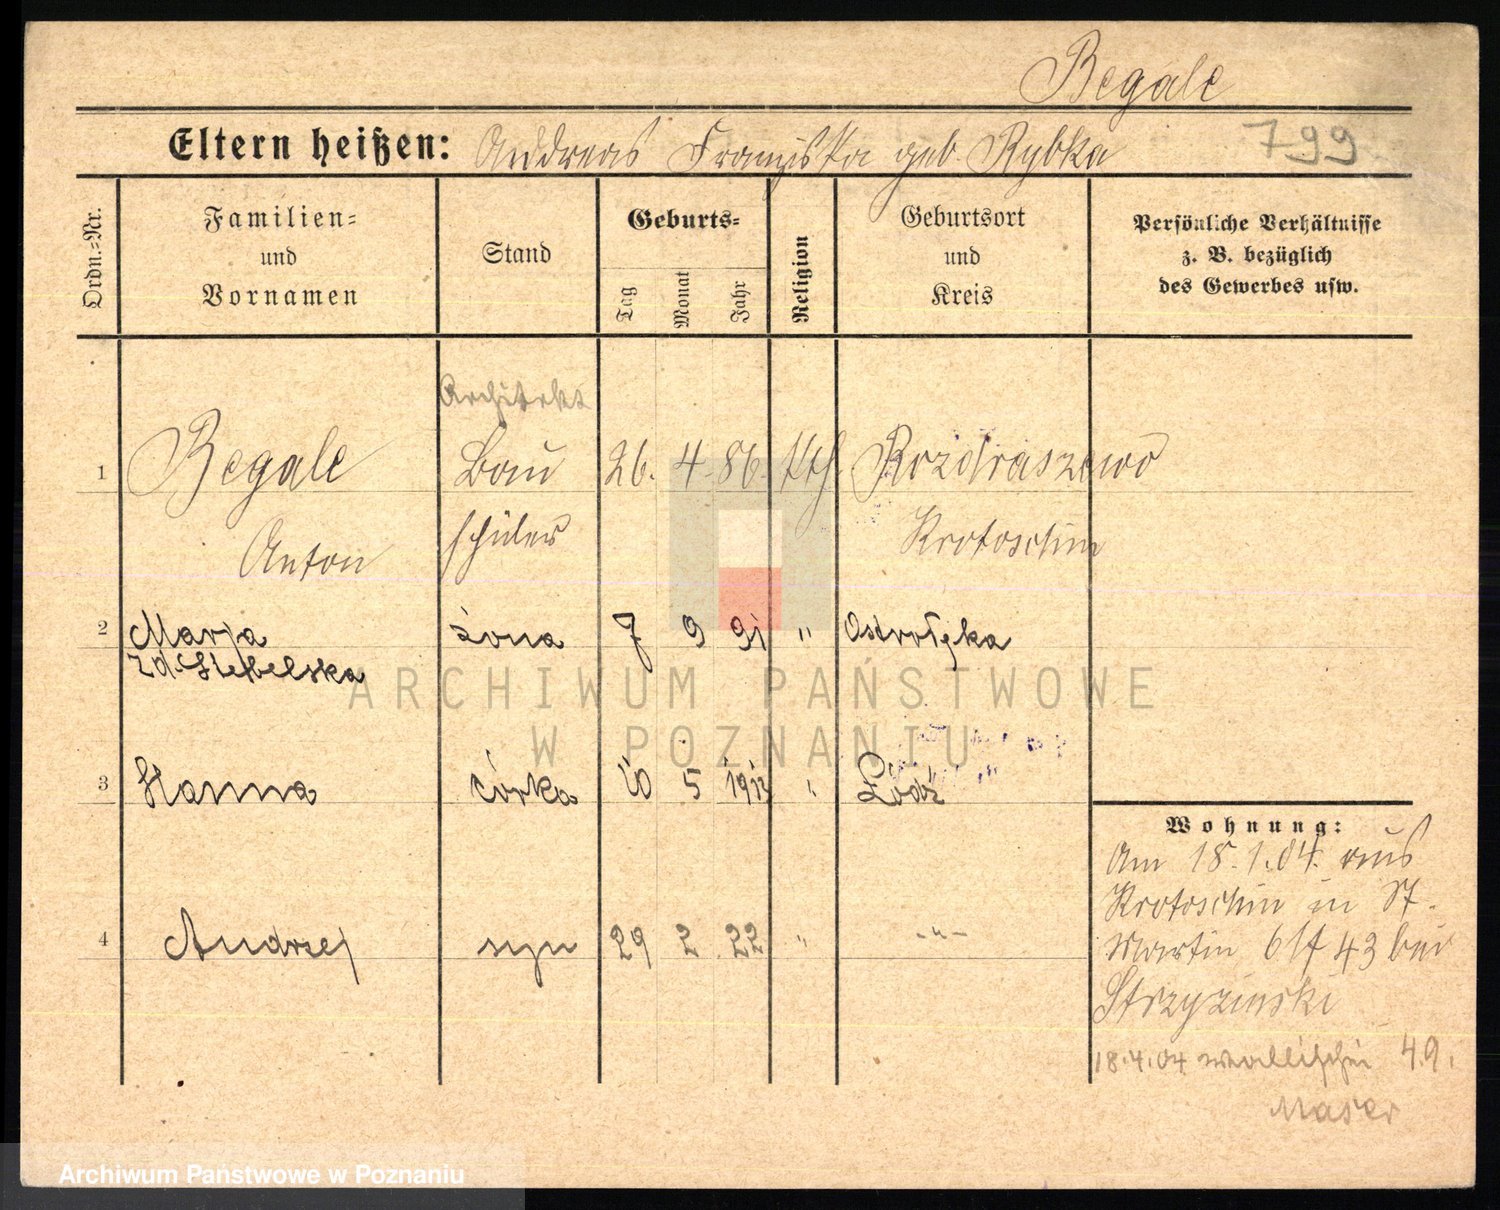 Begale
Eltern heißen: Andreas Franziska geb. Rybka 799
Ordn.=Nr.
Familien=
und
Vornamen
Stand
Geburts=
Tag Monat Jahr
Religion
Geburtsort
und
Kreis
Persönliche Verhältnisse
z. B. bezüglich
des Gewerbes usw.
Architekt
1 Begale Bau 26. 4. 86. kth. Rozdraszewo
Anton schüler Krotoschin
2 Marja żona 7 9 91 " Ostrołęka
3 Hanna córka 10 5 1913 " Łódź
4 Andrzej syn 29 2 22 " -"-
Wohnung:
Am 18.1.04. aus
Krotoschin in St.
Martin 43 bei
Strzyzinski
18.4.04 Wallischei
ARCHIWUM PAŃSTWOWE
W POZNANIU
Archiwum Państwowe w Poznaniu